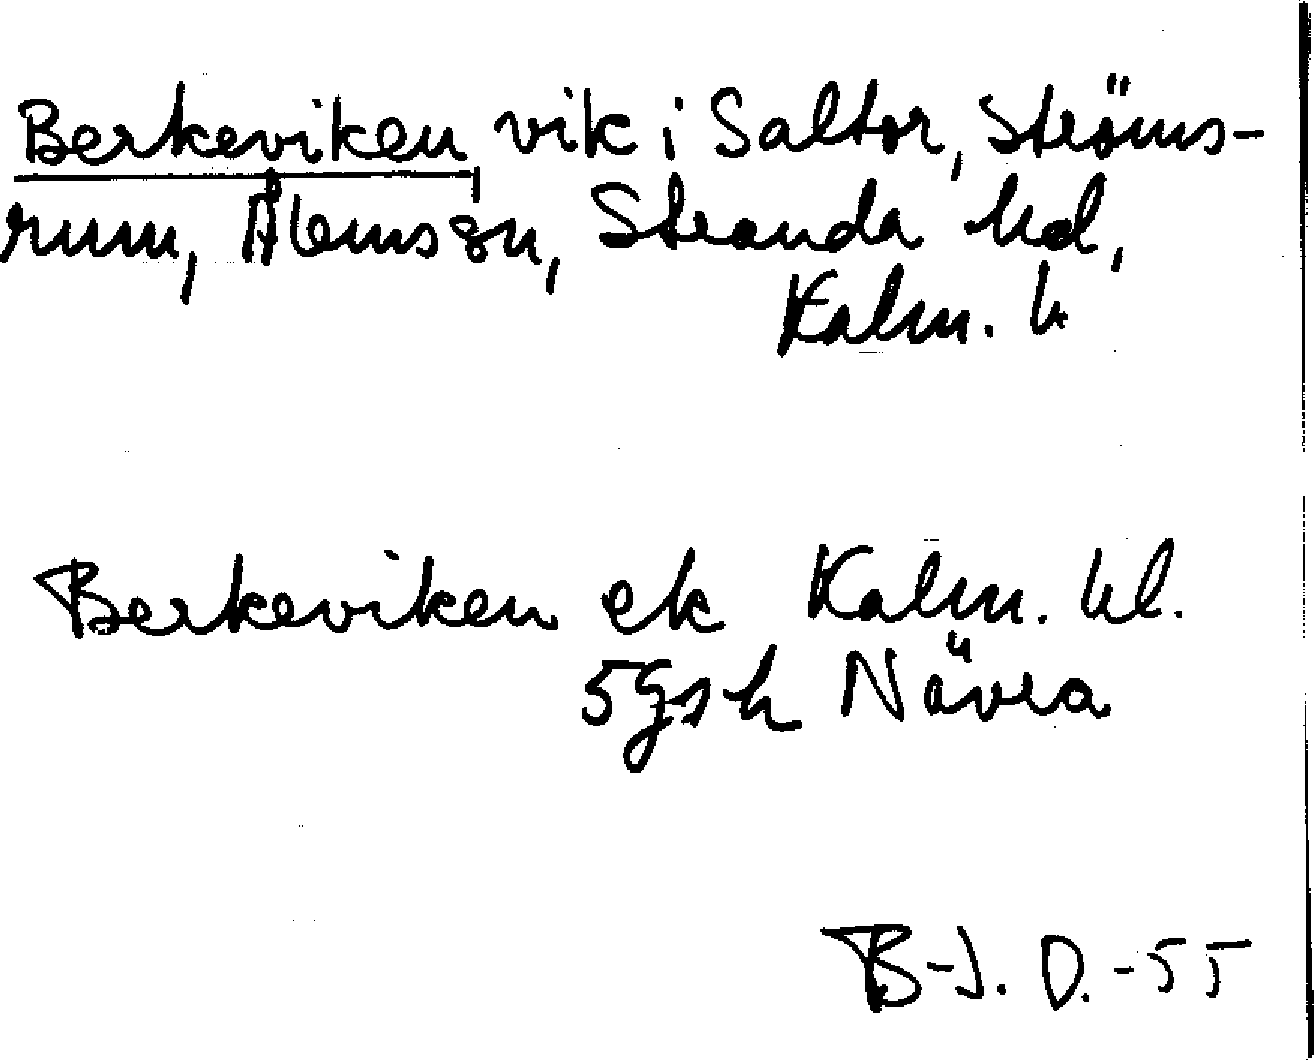 Berkeviken, vik i Saltor, Ströms-
rum, Ålems sn, Stranda hd,
Kalm. l
Berkeviken ek Kalm. bl.
5g sh Nävra
B-J. D.-55